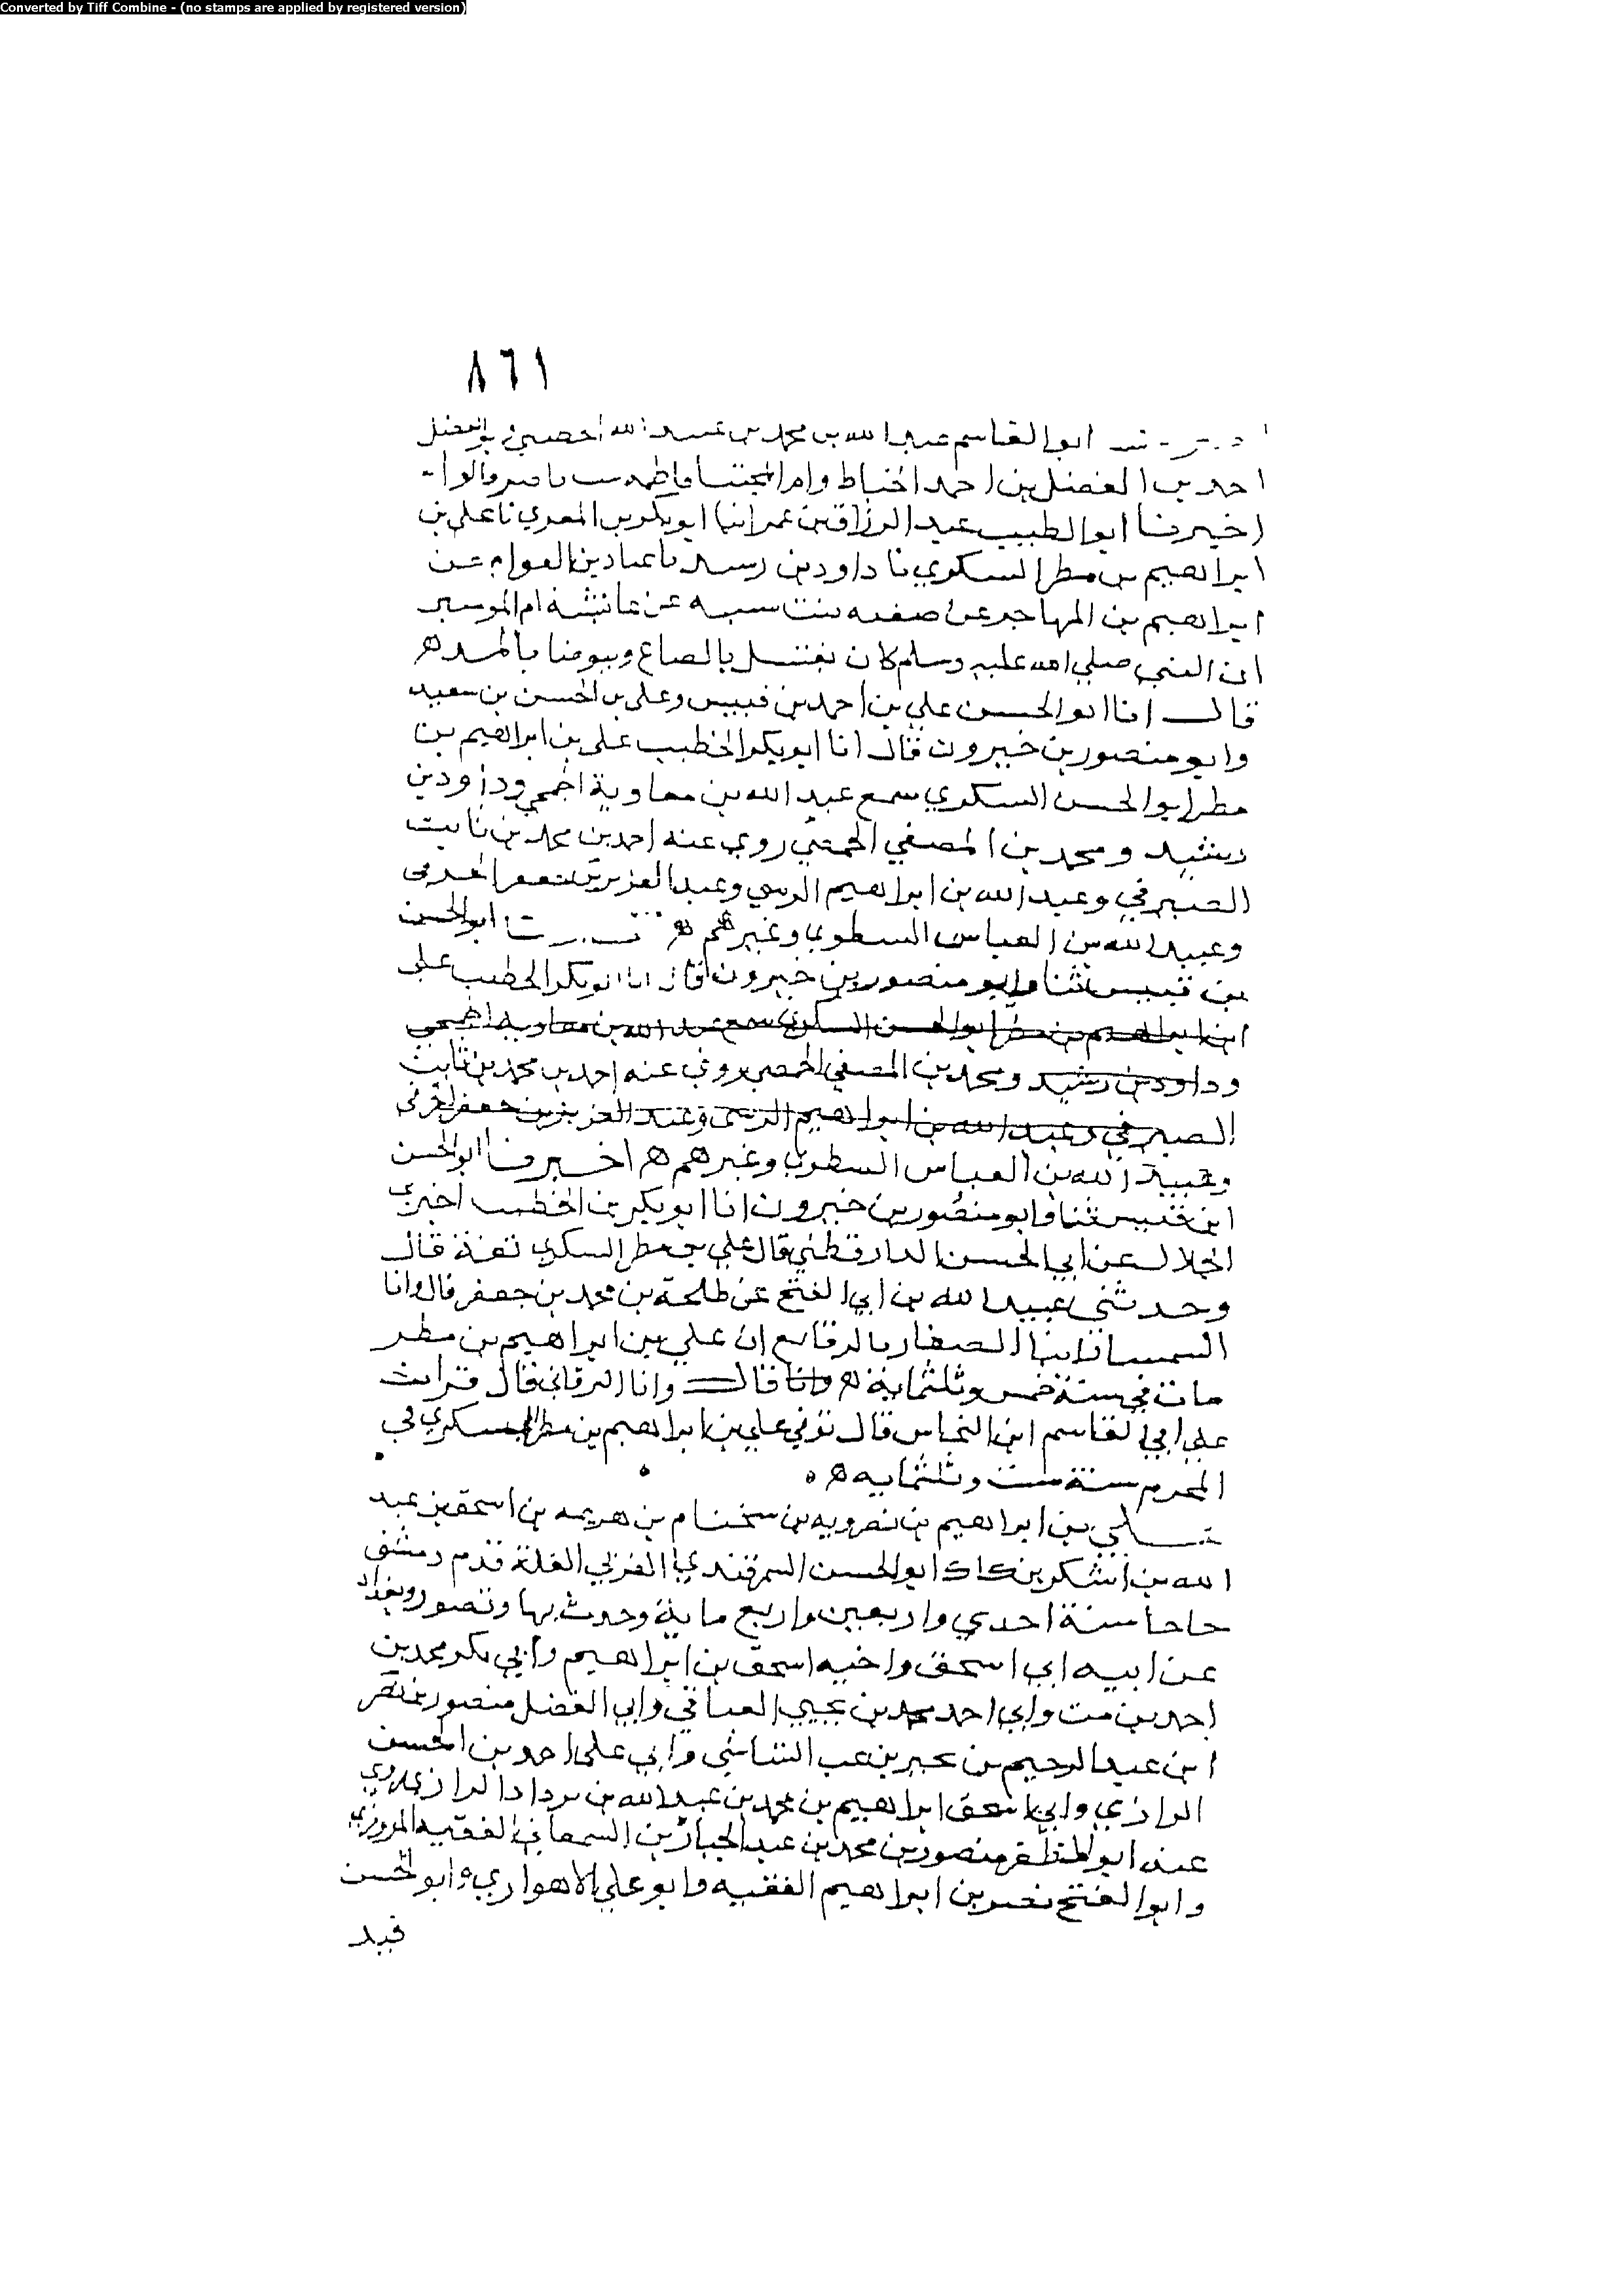 Converted by Tiff Combine - (no stamps are applied by registered version)
٨٦١
ابو القاسم عبد الله بن محمد بن عبد الله
احمد بن الفضل بن احمد الخياط وام المجتبا فاطمه ناصر قالوا
اخبرنا ابو الطيب عبد الرزاق بن عمر انبا ابو بكر بن المقري نا علي بن
ابراهيم بن مطر السكوي نا داود بن رسد نا عباد بن العوام عن
ابراهيم بن المهاجر عن صفيه بنت سيبه عن عائشة ام
ان النبي صلي الله عليه وسلم كان يغتسل بالصاع ويتوضا بالمد ه
قال انا ابو الحسن علي بن احمد بن قبيس وعلي بن الحسن بن سعيد
وابو منصور بن خيرون قال انا ابو بكر الخطيب علي بن ابراهيم بن
مطر ابو الحسن السكري سمع عبد الله بن معاوية الجمحي وداود بن
رشيد ومحمد بن المصفي الحمصي روي عنه احمد بن محمد بن ثابت
الصيرفي وعبد الله بن ابراهيم الزبيبي وعبد العزيز بن جعفر الخرقي
وعبيد الله بن العباس السطوي وغيرهم ه ابو الحسن
بن قبيس ثنا وابو منصور بن خيرون قال انا ابو بكر الخطيب علي
ابن ابراهيم بن مطر ابو الحسن السكري سمع عبد الله بن معاوية الجمحي
وداود بن رشيد ومحمد بن المصفي الحمصي روي عنه احمد بن محمد بن ثابت
الصيرفي وعبد الله بن ابراهيم الزبيبي وعبد العزيز بن جعفر الخرقي
وعبيد الله بن العباس السطوي وغيرهم ه اخبرنا ابو الحسن
ابن قبيس ثنا وابو منصور بن خيرون انا ابو بكر بن الخطيب اخبرني
الخلال عن ابي الحسن الدارقطني قال علي بن مطر السكري ثقة قال
وحدثني عبيد الله بن ابي الفتح عن طلحة بن محمد بن جعفر قال وانا
السمسار انبا الصفار نا ابن قانع ان علي بن ابراهيم بن مطر
مات في سنة خمس وثلثماية ه وانا قال وانا البرقاني قال قرات
علي ابي القاسم ابن النخاس قال توفي علي بن ابراهيم بن مطر السكري في
المحرم سنة ست وثلثمايه ه
علي بن ابراهيم بن نصرويه بن سختام بن هرثمه بن اسحق بن عبد
الله بن اشكر بن كاك ابو الحسن السمرقندي الغزي الفلة قدم دمشق
حاجا سنة احدي واربعين واربع ماية وحدث بها وبصور وبغداد
عن ابيه ابي اسحق واخيه اسحق بن ابراهيم وابي بكر محمد بن
احمد بن مت وابي احمد محمد بن يحيي وابي الفضل منصور بن نصر
ابن عبد الرحيم بن الشاشي وابي علي احمد بن الحسن
الرازي وابي اسحق ابراهيم بن محمد بن عبد الله بن يرداد الرازي روي
عنه ابو المظفر منصور بن محمد بن عبد الجبار بن السمعاني الفقيه المروزي
وابو الفتح نصر بن ابراهيم الفقيه وابو علي الاهوازي وابو الحسن
قبيد